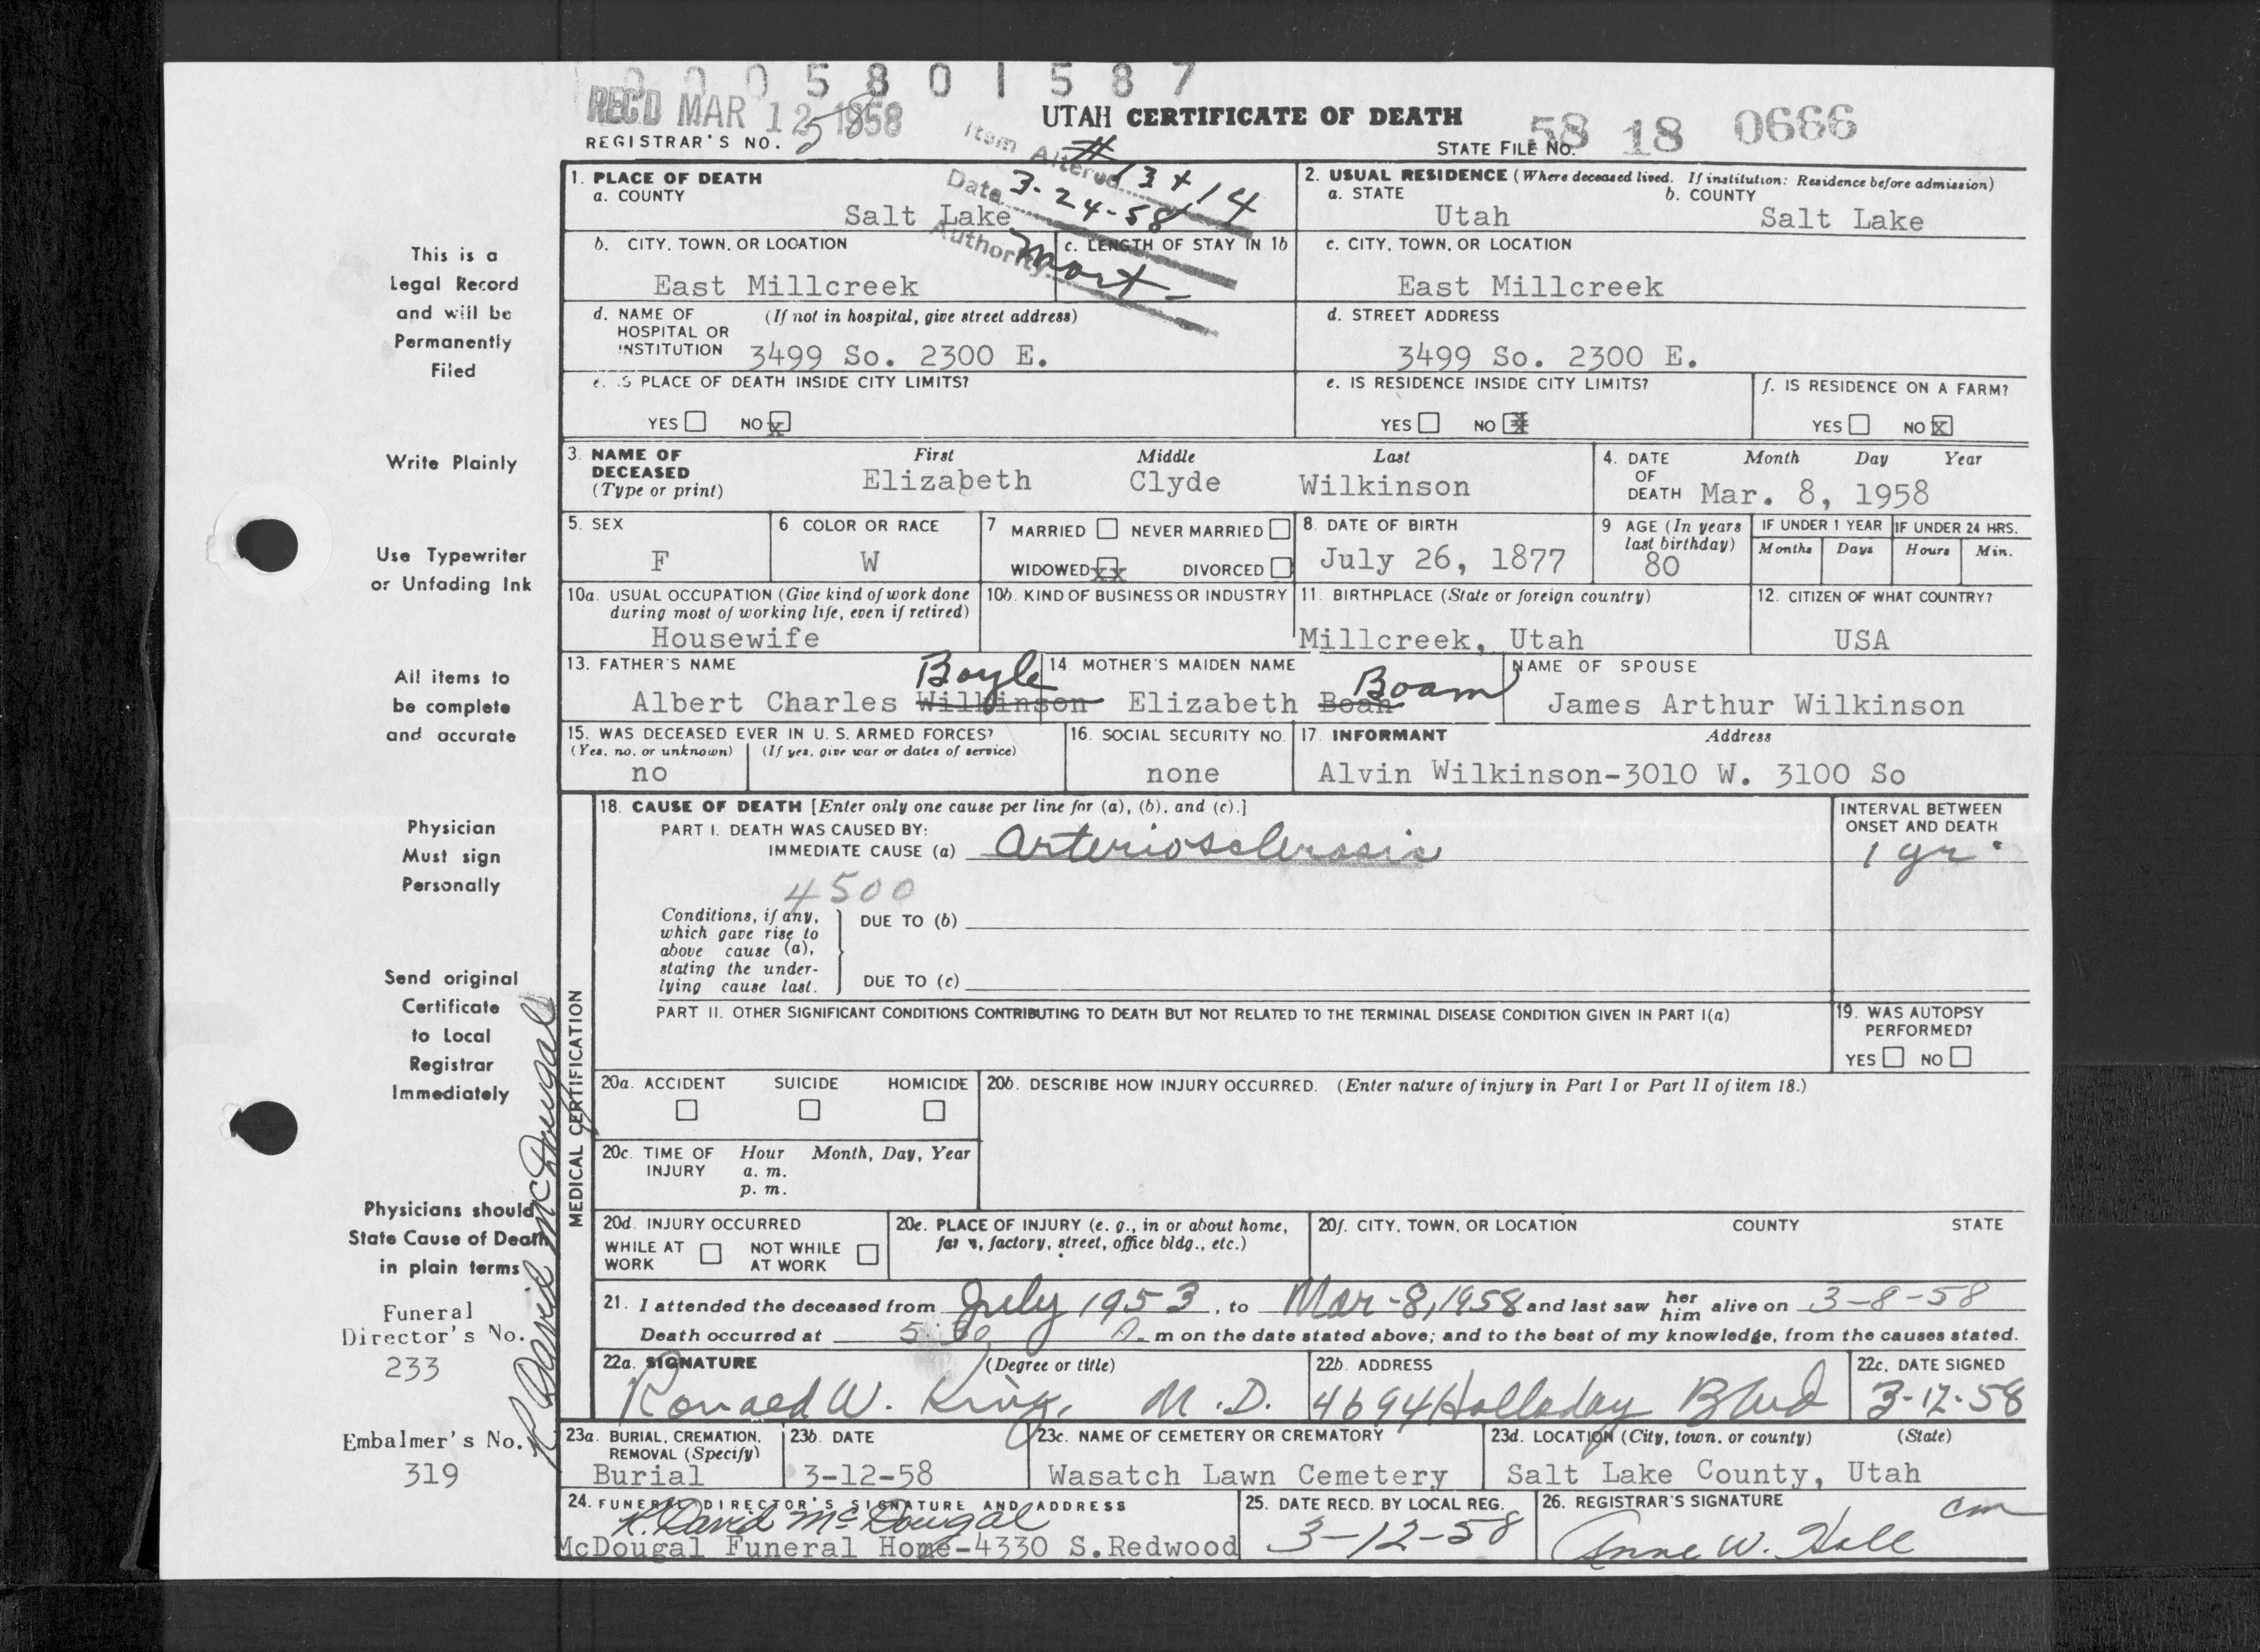 0 0 0 5 8 0 1 5 8 7
REC'D MAR 12 1958
UTAH CERTIFICATE OF DEATH
REGISTRAR'S NO. 58
STATE FILE NO. 58 18 0666
Item Altered # 13 + 14
Date 3-24-58
Authority Mort-
1. PLACE OF DEATH
a. COUNTY
Salt Lake
2. USUAL RESIDENCE (Where deceased lived. If institution: Residence before admission)
a. STATE b. COUNTY
Utah Salt Lake
b. CITY, TOWN, OR LOCATION c. LENGTH OF STAY IN 1b
East Millcreek
c. CITY, TOWN, OR LOCATION
East Millcreek
d. NAME OF (If not in hospital, give street address)
HOSPITAL OR
INSTITUTION 3499 So. 2300 E.
d. STREET ADDRESS
3499 So. 2300 E.
e. IS PLACE OF DEATH INSIDE CITY LIMITS?
YES NO X
e. IS RESIDENCE INSIDE CITY LIMITS?
YES NO X
f. IS RESIDENCE ON A FARM?
YES NO X
3. NAME OF DECEASED (Type or print)
First Middle Last
Elizabeth Clyde Wilkinson
4. DATE OF DEATH Month Day Year
Mar. 8, 1958
5. SEX
F
6. COLOR OR RACE
W
7 MARRIED NEVER MARRIED
WIDOWED XX DIVORCED
8. DATE OF BIRTH
July 26, 1877
9 AGE (In years last birthday)
80
IF UNDER 1 YEAR IF UNDER 24 HRS.
Months Days Hours Min.
10a. USUAL OCCUPATION (Give kind of work done
during most of working life, even if retired)
Housewife
10b. KIND OF BUSINESS OR INDUSTRY
11. BIRTHPLACE (State or foreign country)
Millcreek, Utah
12. CITIZEN OF WHAT COUNTRY?
USA
13. FATHER'S NAME
Boyle
Albert Charles Wilkinson
14. MOTHER'S MAIDEN NAME
Boam
Elizabeth Boan
NAME OF SPOUSE
James Arthur Wilkinson
15. WAS DECEASED EVER IN U. S. ARMED FORCES?
(Yes, no, or unknown) (If yes, give war or dates of service)
no
16. SOCIAL SECURITY NO.
none
17. INFORMANT Address
Alvin Wilkinson-3010 W. 3100 So
MEDICAL CERTIFICATION
18. CAUSE OF DEATH [Enter only one cause per line for (a), (b), and (c).]
PART I. DEATH WAS CAUSED BY:
IMMEDIATE CAUSE (a) arteriosclerosis
INTERVAL BETWEEN
ONSET AND DEATH
1 yr.
4500
Conditions, if any,
which gave rise to
above cause (a),
stating the under-
lying cause last.
DUE TO (b)
DUE TO (c)
PART II. OTHER SIGNIFICANT CONDITIONS CONTRIBUTING TO DEATH BUT NOT RELATED TO THE TERMINAL DISEASE CONDITION GIVEN IN PART I(a)
19. WAS AUTOPSY
PERFORMED?
YES NO
20a. ACCIDENT SUICIDE HOMICIDE
20b. DESCRIBE HOW INJURY OCCURRED. (Enter nature of injury in Part I or Part II of item 18.)
20c. TIME OF INJURY Hour Month, Day, Year
a. m.
p. m.
20d. INJURY OCCURRED
WHILE AT WORK NOT WHILE AT WORK
20e. PLACE OF INJURY (e. g., in or about home,
farm, factory, street, office bldg., etc.)
20f. CITY, TOWN, OR LOCATION COUNTY STATE
21. I attended the deceased from July 1953, to Mar-8, 1958 and last saw her him alive on 3-8-58
Death occurred at 5:30 m on the date stated above; and to the best of my knowledge, from the causes stated.
22a. SIGNATURE (Degree or title)
Ronald W. King, M.D.
22b. ADDRESS
4694 Holladay Blvd
22c. DATE SIGNED
3-12-58
23a. BURIAL, CREMATION,
REMOVAL (Specify)
Burial
23b. DATE
3-12-58
23c. NAME OF CEMETERY OR CREMATORY
Wasatch Lawn Cemetery
23d. LOCATION (City, town, or county) (State)
Salt Lake County, Utah
24. FUNERAL DIRECTOR'S SIGNATURE AND ADDRESS
R. David McDougal
McDougal Funeral Home-4330 S.Redwood
25. DATE RECD. BY LOCAL REG.
3-12-58
26. REGISTRAR'S SIGNATURE
Anne W. Hall cm
This is a
Legal Record
and will be
Permanently
Filed
Write Plainly
Use Typewriter
or Unfading Ink
All items to
be complete
and accurate
Physician
Must sign
Personally
Send original
Certificate
to Local
Registrar
Immediately
Physicians should
State Cause of Death
in plain terms
Funeral
Director's No.
233
Embalmer's No.
319
R. David McDougal